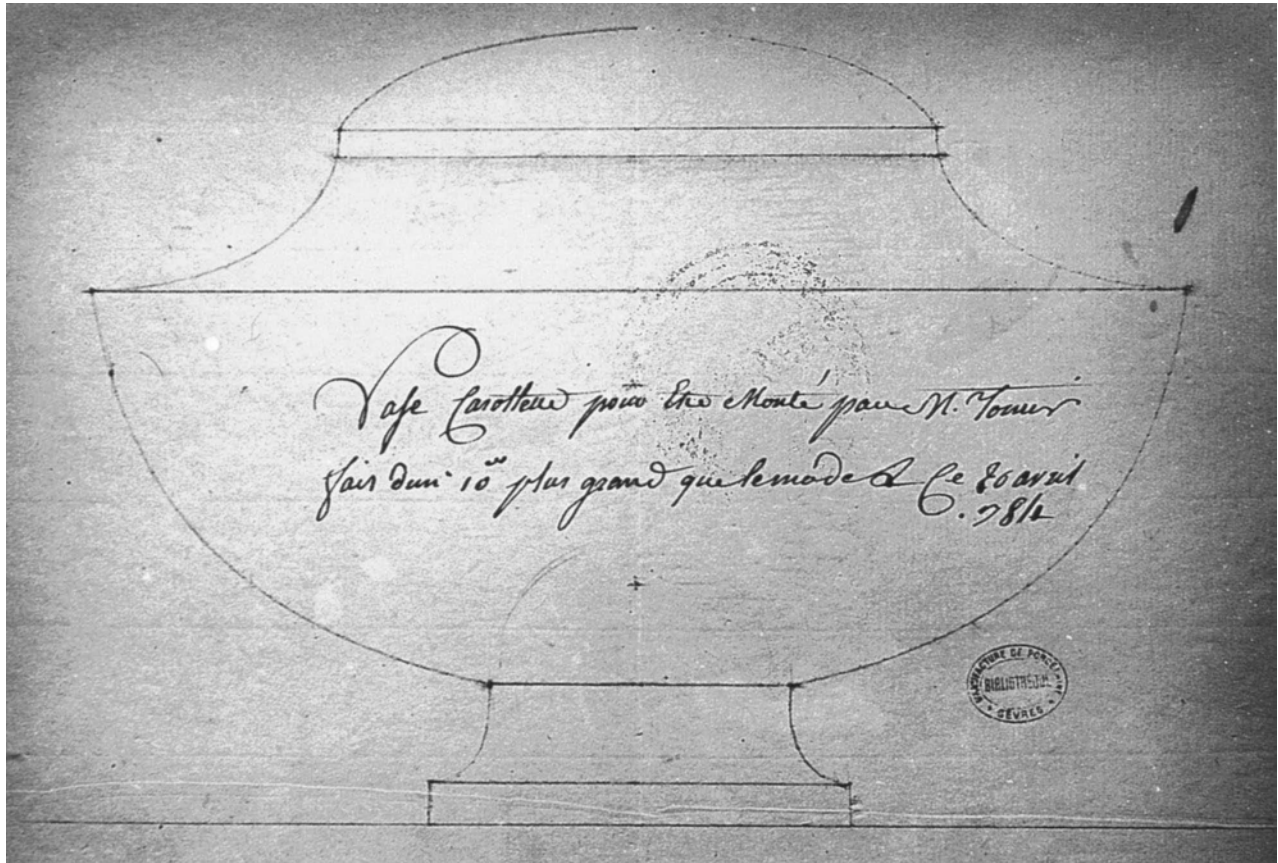 Vase Cassollette pour Etre Monté par M. Tomir
fair d'un 10.e plus grand que le model Ce 20 avril
.784
MANUFACTURE DE PORCELAINE
BIBLIOTHEQUE
SEVRES